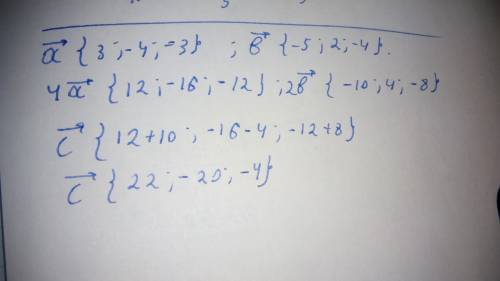 a⃗ {3 ; -4 ; -3} ; b⃗ {-5 ; 2 ; -4}.
4a⃗ {12 ; -16 ; -12} ; 2b⃗ {-10 ; 4 ; -8}
c⃗ {12+10 ; -16-4 ; -12+8}
c⃗ {22 ; -20 ; -4}